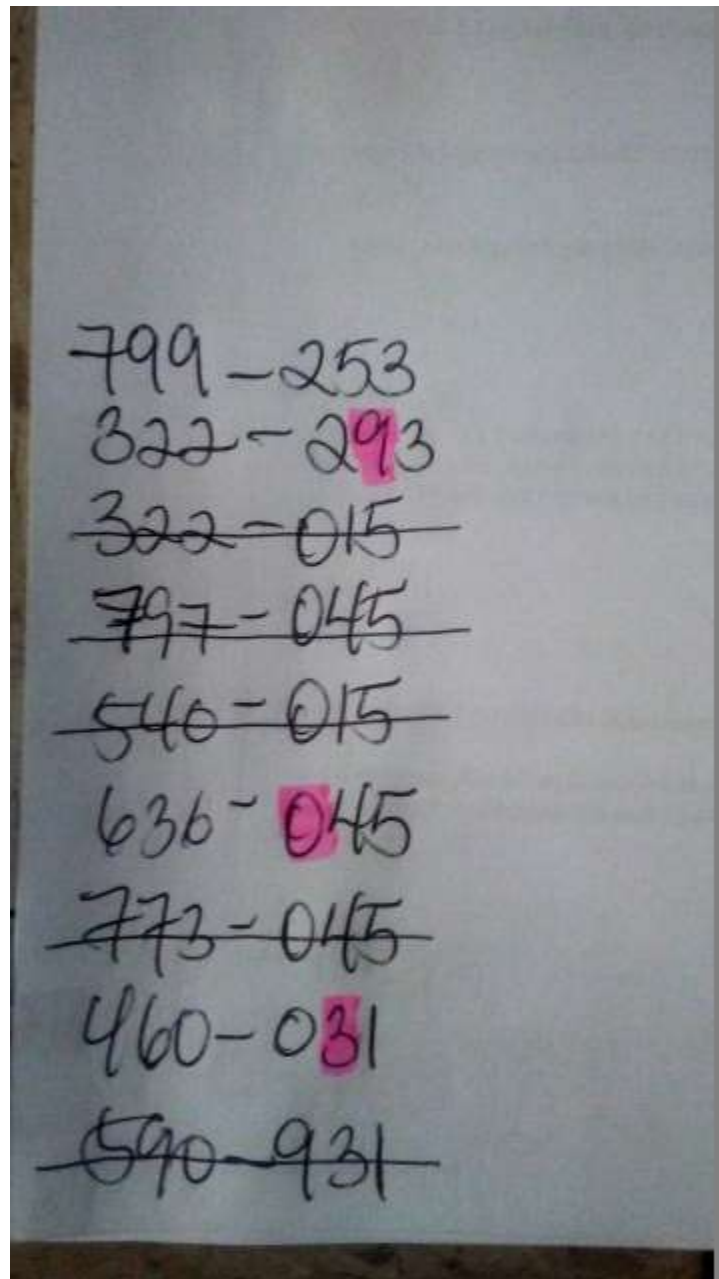 799-253
322-293
322-015
797-045
540-015
636-045
773-045
460-031
590-931